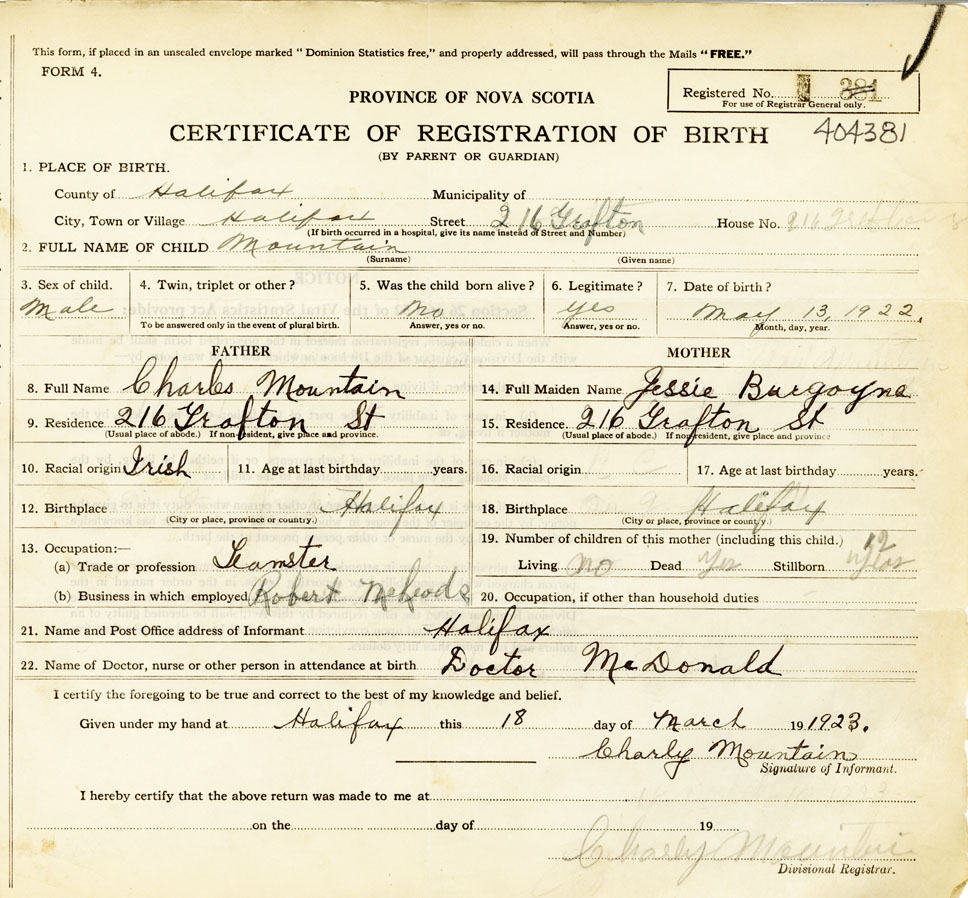 This form, if placed in an unsealed envelope marked "Dominion Statistics free," and properly addressed, will pass through the Mails "FREE."
FORM 4.
Registered No. 381
For use of Registrar General only.
PROVINCE OF NOVA SCOTIA
CERTIFICATE OF REGISTRATION OF BIRTH 404381
(BY PARENT OR GUARDIAN)
1. PLACE OF BIRTH.
County of Halifax Municipality of
City, Town or Village Halifax Street 216 Grafton House No. 216
(If birth occurred in a hospital, give its name instead of Street and Number)
2. FULL NAME OF CHILD Mountain
(Surname) (Given name)
3. Sex of child. 4. Twin, triplet or other? 5. Was the child born alive? 6. Legitimate? 7. Date of birth?
Male No yes May 13, 1922.
To be answered only in the event of plural birth. Answer, yes or no. Answer, yes or no. Month, day, year.
FATHER MOTHER
8. Full Name Charles Mountain 14. Full Maiden Name Jessie Burgoyne
9. Residence 216 Grafton St 15. Residence 216 Grafton St
(Usual place of abode.) If non-resident, give place and province. (Usual place of abode.) If non-resident, give place and province
10. Racial origin Irish 11. Age at last birthday years. 16. Racial origin 17. Age at last birthday years.
12. Birthplace Halifax 18. Birthplace Halifax
(City or place, province or country.) (City or place, province or country.)
13. Occupation:— 19. Number of children of this mother (including this child.) 12
(a) Trade or profession Teamster Living No Dead Yes Stillborn
(b) Business in which employed Robert McLeods 20. Occupation, if other than household duties
21. Name and Post Office address of Informant Halifax
22. Name of Doctor, nurse or other person in attendance at birth Doctor McDonald
I certify the foregoing to be true and correct to the best of my knowledge and belief.
Given under my hand at Halifax this 18 day of March 19 1923.
Charly Mountain
Signature of Informant.
I hereby certify that the above return was made to me at
on the day of 19
Charly Mountain
Divisional Registrar.